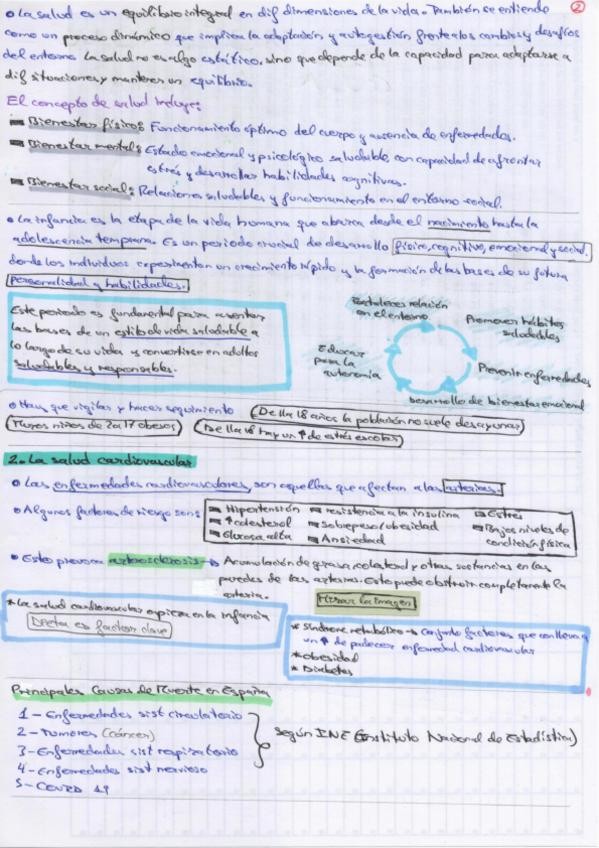 ② 
• La salud es un equilibrio integral en dif dimensiones de la vida. También se entiende
como un proceso dinámico que implica la adaptación y autogestión frente a los cambios y desafíos
del entorno. La salud no es algo estático, sino que depende de la capacidad para adaptarse a
dif situaciones y mantener un equilibrio.
El concepto de salud incluye:
Bienestar físico: Funcionamiento óptimo del cuerpo y ausencia de enfermedades.
Bienestar mental: Estado emocional y psicológico saludable con capacidad de afrontar
estrés y desarrollar habilidades cognitivas.
Bienestar social: Relaciones saludables y funcionamiento en el entorno social.
• La infancia es la etapa de la vida humana que abarca desde el nacimiento hasta la
adolescencia temprana. Es un periodo crucial de desarrollo físico, cognitivo, emocional y social.
donde los individuos experimentan un crecimiento rápido y la formación de las bases de su futura
personalidad y habilidades.
Este periodo es fundamental para asentar
las bases de un estilo de vida saludable a
lo largo de su vida y convertirse en adultos
saludables y responsables.
Fortalecer relación
en el entorno
Promover hábitos
saludables
Prevenir enfermedades
Desarrollo de bienestar emocional
Educar
para la
autonomía
• Hay que vigilar y hacer seguimiento
De 11 a 18 años la población no suele desayunar
Muchos niños de 2 a 17 obesos
De 11 a 18 hay un ↑ de estrés escolar
2. La salud cardiovascular
• Las enfermedades cardiovasculares, son aquellas que afectan a las arterias.
• Algunos factores de riesgo son:
Hipertensión
↑ colesterol
Glucosa alta
resistencia a la insulina
Sobrepeso/obesidad
Ansiedad
Estrés
Bajos niveles de
condición física
• Esto provoca → Acumulación de grasa, colesterol y otras sustancias en las
paredes de las arterias. Esto puede obstruir completamente la
arteria.
Mirar la imagen
* La salud cardiovascular empieza en la infancia
Dieta es factor clave
* Síndrome metabólico → Conjunto factores que conlleva a
un ↑ de padecer enfermedad cardiovascular
* obesidad
* Diabetes
Principales Causas de Muerte en España
1 - Enfermedades sist circulatorio
2 - Tumores (cáncer)
3 - Enfermedades sist respiratorio
4 - Enfermedades sist nervioso
5 - COVID 19
Según INE (Instituto Nacional de Estadística)